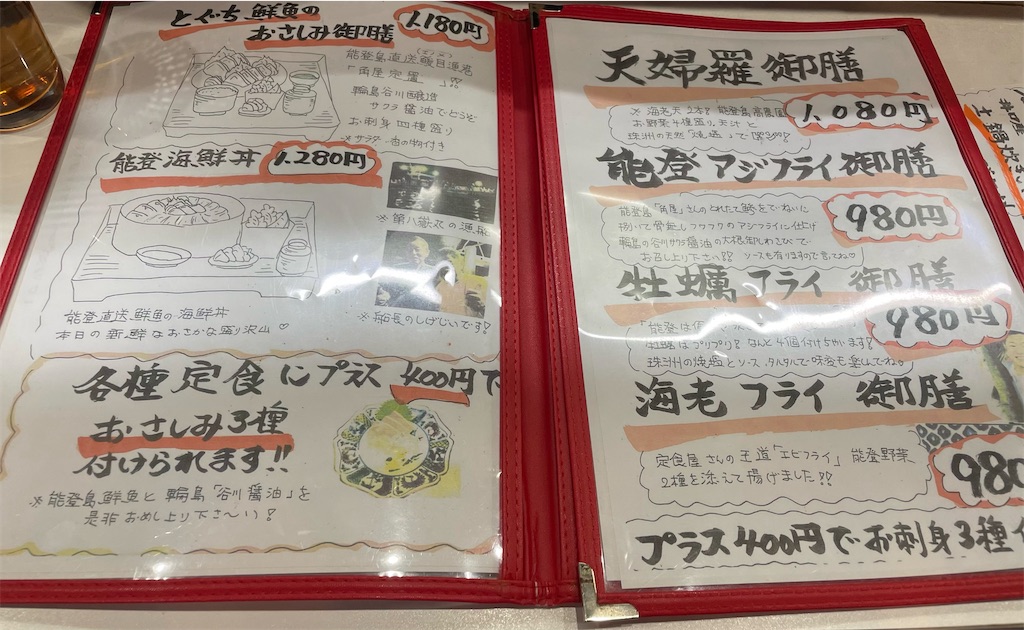 とぐち鮮魚の
おさしみ御膳 1,180円
能登島直送 鰀目漁港
「角屋定置」!!
輪島谷川醸造
サクラ醤油でどうぞ
お刺身四種盛り
※サラダ・香の物付き
能登海鮮丼 1,280円
※第八嶽丸の漁操
※船長のしげじいです!
能登直送鮮魚の海鮮丼
本日の新鮮なおさかな盛り沢山♡
各種定食にプラス400円で
おさしみ3種
付けられます!!
※能登島鮮魚と輪島「谷川醤油」を
是非おめし上り下さ〜い!
天婦羅御膳
1,080円
※海老天2本!能登島高農園
お野菜4種盛り、天汁と
珠洲の天然「焼塩」で
能登アジフライ御膳
980円
能登島「角屋」さんのとれたて鯵をていねいに
捌いて骨抜しフワフワのアジフライに仕上げ
輪島の谷川サクラ醤油の大根卸しわさびで
お召し上り下さい!! ソースも有りますので言ってね♡
牡蠣フライ御膳
980円
「能登は
牡蠣はプリプリ!なんと4個付けちゃいます!
珠洲の焼塩とソース、タルタルで味変も楽しんでね♡
海老フライ御膳
980
定食屋さんの王道「エビフライ」能登野菜
2種を添えて揚げました!!
プラス400円でお刺身3種